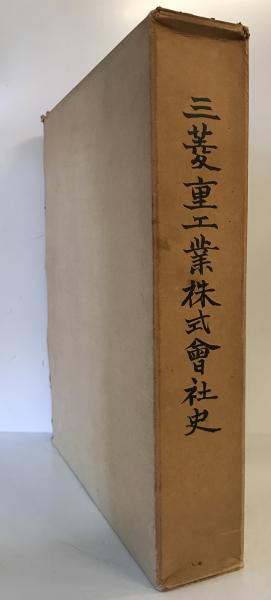 三菱重工業株式會社史